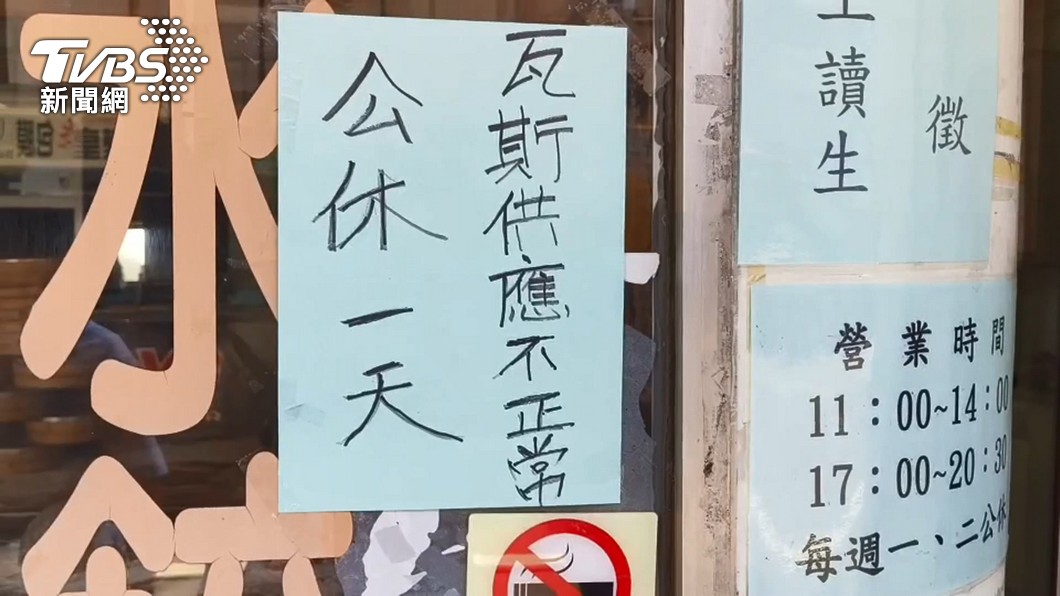 TVBS
新聞網
瓦斯供應不正常
公休一天
徵
工讀生
營業時間
11：00~14：00
17：00~20：30
每週一、二公休
水